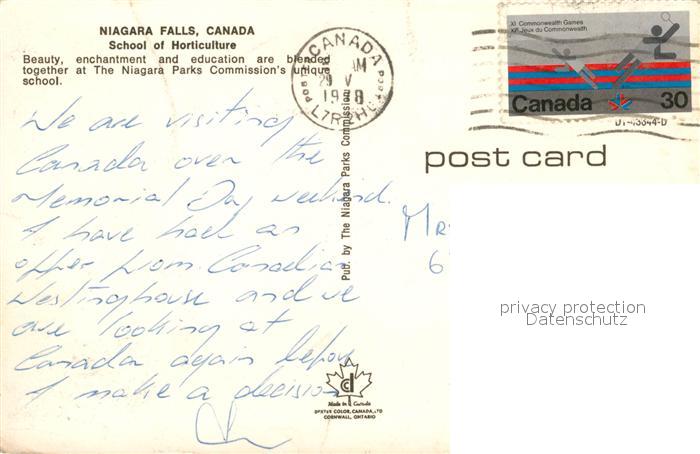 NIAGARA FALLS, CANADA
School of Horticulture
Beauty, enchantment and education are blended
together at The Niagara Parks Commission's unique
school.
We are visiting
Canada over the
Memorial Day weekend.
I have had an
offer from Canadian
Westinghouse and we
are looking at
Canada again before
I make a decision
Pub. by The Niagara Parks Commission
Made in Canada
DEXTER COLOR, CANADA, LTD
CORNWALL, ONTARIO
CANADA
AM
29 V
1978
XI Commonwealth Games
XIes Jeux du Commonwealth
Canada 30
DT-43844-D
post card
MR
6
privacy protection
Datenschutz